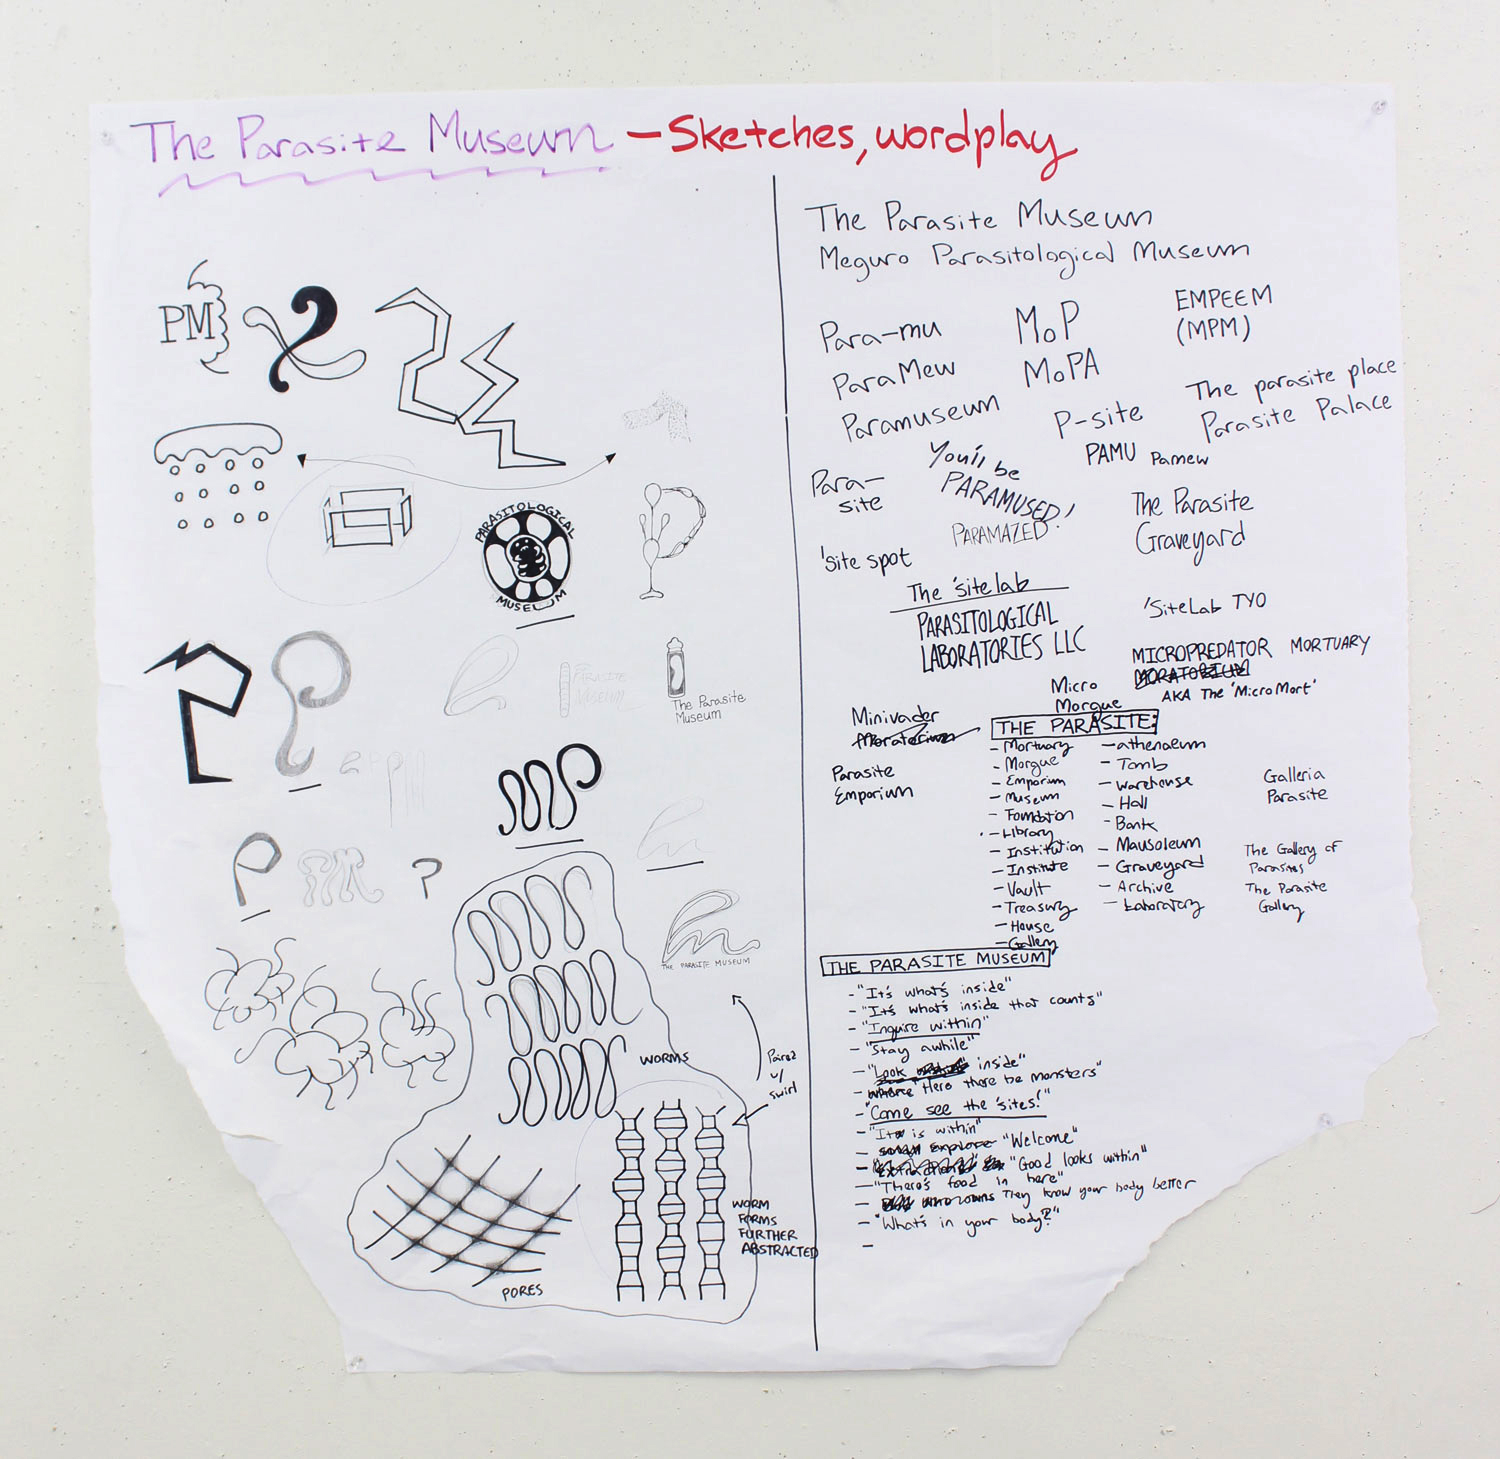 The Parasite Museum – Sketches, wordplay
PM
PARASITOLOGICAL
MUSEUM
PARASITE
MUSEUM
The Parasite
Museum
THE PARASITE MUSEUM
WORMS
Paired
w/
swirl
WORM
FORMS
FURTHER
ABSTRACTED
PORES
The Parasite Museum
Meguro Parasitological Museum
Para-mu
MoP
EMPEEM
(MPM)
ParaMew
MoPA
Paramuseum
P-site
The parasite place
Parasite Palace
PAMU Pamew
Para-
site
You'll be
PARAMUSED!
PARAMAZED
The Parasite
Graveyard
'site spot
The 'sitelab
PARASITOLOGICAL
LABORATORIES LLC
'SiteLab TYO
MICROPREDATOR MORTUARY
MORATORIUM
AKA The 'MicroMort'
Micro
Morgue
Minivader
Moratorium
Parasite
Emporium
THE PARASITE:
– Mortuary
– Morgue
– Emporium
– Museum
– Foundation
– Library
– Institution
– Institute
– Vault
– Treasury
– House
– Gallery
– athenaeum
– Tomb
– Warehouse
– Hall
– Bank
– Mausoleum
– Graveyard
– Archive
– Laboratory
Galleria
Parasite
The Gallery of
Parasites
The Parasite
Gallery
THE PARASITE MUSEUM
– "It's what's inside"
– "It's what's inside that counts"
– "Inquire within"
– "Stay awhile"
– "Look inside"
– Here there be monsters"
– "Come see the 'sites!"
– "It is within"
– explore "Welcome"
– "Good looks within"
– "There's food in here"
– unknowns They know your body better
– "What's in your body?"
–